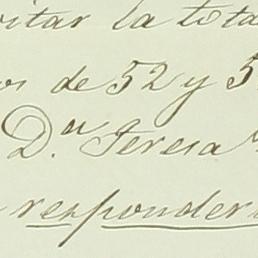 vitar la tota
os de 52 y 5
D.ª Teresa
responder